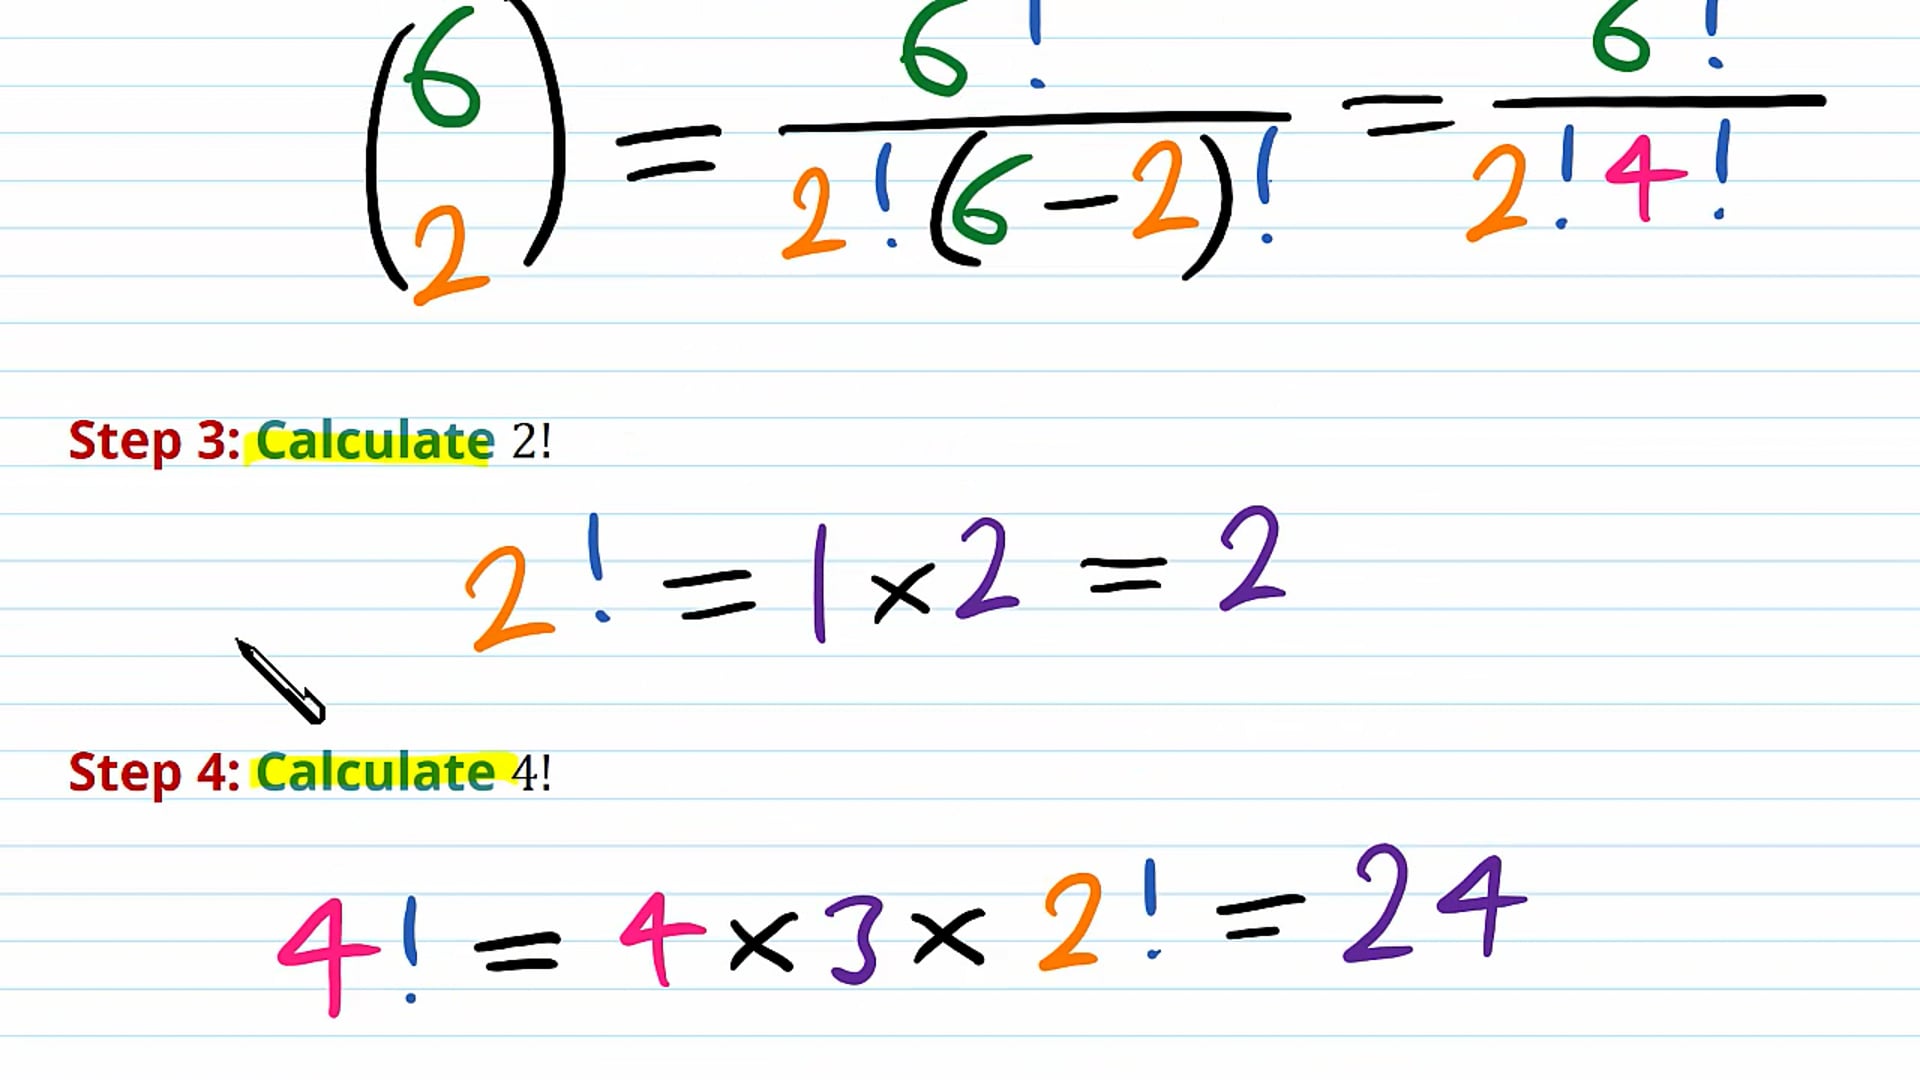 (6 2) = 6! / 2!(6-2)! = 6! / 2!4!
Step 3: Calculate 2!
2! = 1 × 2 = 2
Step 4: Calculate 4!
4! = 4 × 3 × 2! = 24